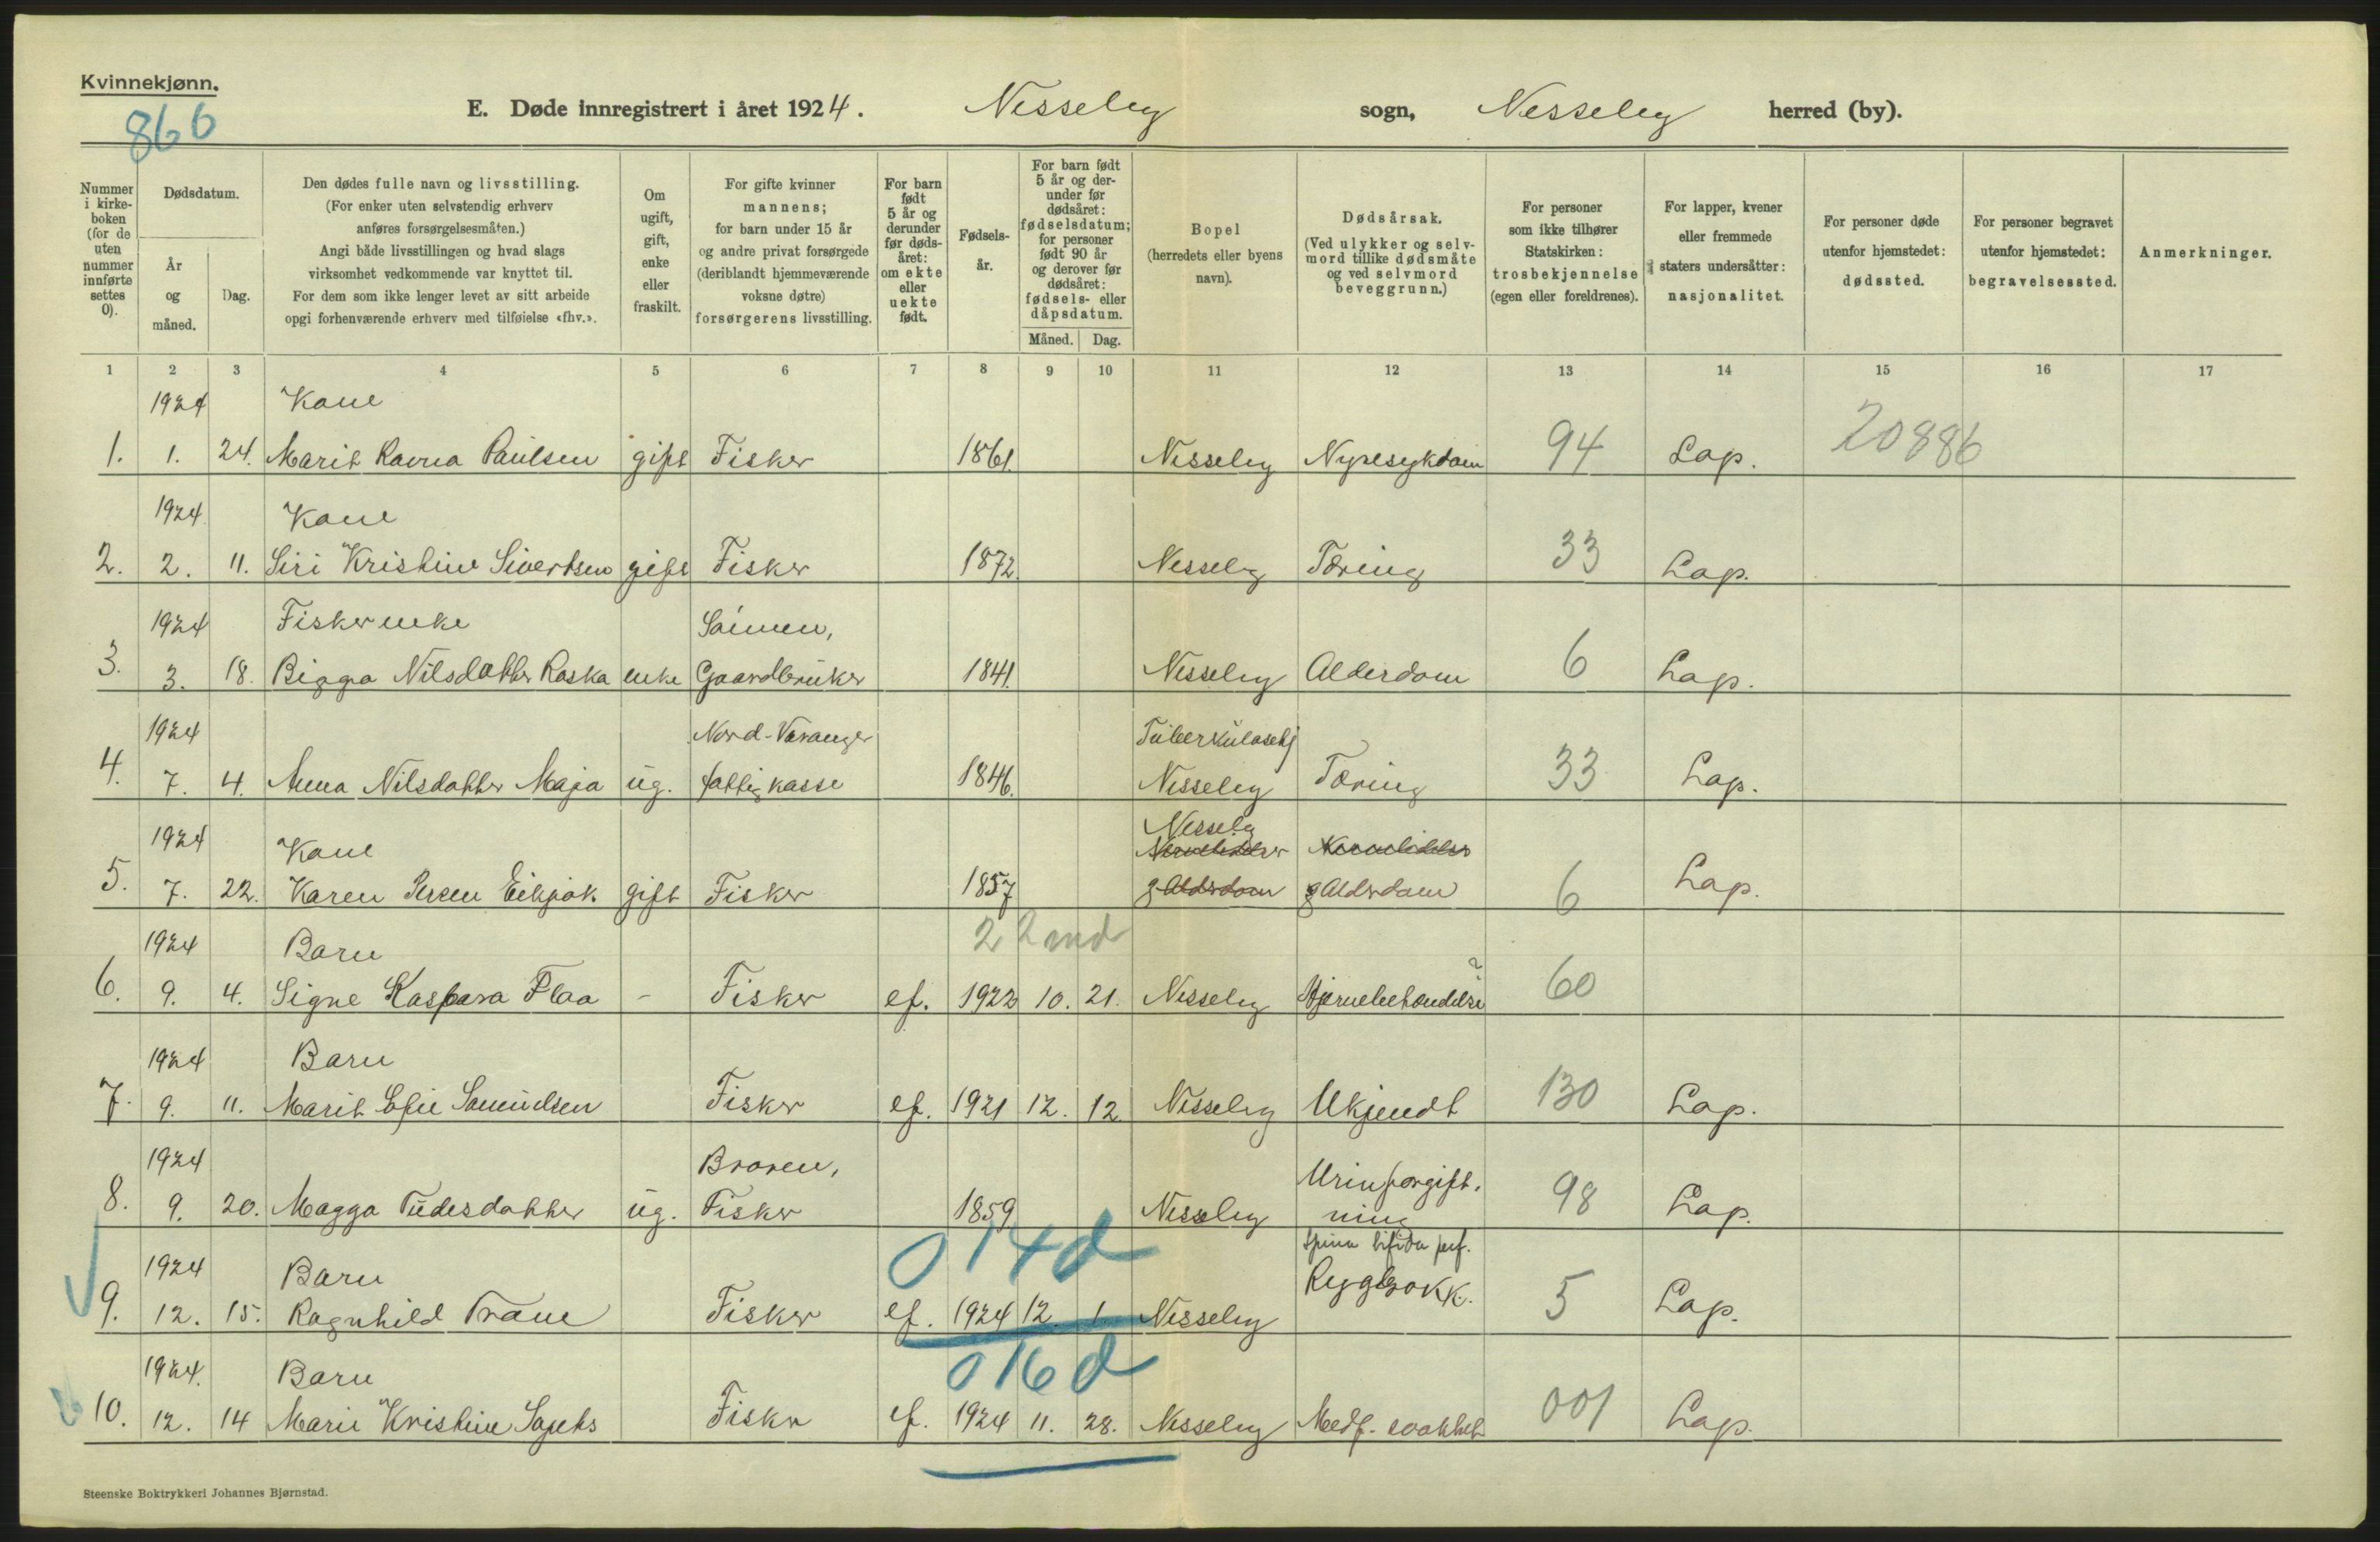 Kvinnekjønn.
866
E. Døde innregistrert i året 1924. Nesseby sogn, Nesseby herred (by).
Nummer i kirke-boken (for de uten nummer innførte settes 0).
Dødsdatum.
År og måned.
Dag.
Den dødes fulle navn og livsstilling.
(For enker uten selvstendig erhverv
anføres forsørgelsesmåten.)
Angi både livsstillingen og hvad slags
virksomhet vedkommende var knyttet til.
For dem som ikke lenger levet av sitt arbeide
opgi forhenværende erhverv med tilføielse «fhv.».
Om ugift, gift, enke eller fraskilt.
For gifte kvinner
mannens;
for barn under 15 år
og andre privat forsørgede
(deriblandt hjemmeværende
voksne døtre)
forsørgerens livsstilling.
For barn født 5 år og derunder før døds-året: om ekte eller uekte født.
Fødsels-år.
For barn født 5 år og der-under før dødsåret: fødselsdatum; for personer født 90 år og derover før dødsåret: fødsels- eller dåpsdatum.
Måned. Dag.
Bopel
(herredets eller byens
navn).
Dødsårsak.
(Ved ulykker og selv-
mord tillike dødsmåte
og ved selvmord
beveggrunn.)
For personer
som ikke tilhører
Statskirken:
trosbekjennelse
(egen eller foreldrenes).
For lapper, kvener
eller fremmede
staters undersåtter:
nasjonalitet.
For personer døde
utenfor hjemstedet:
dødssted.
For personer begravet
utenfor hjemstedet:
begravelsessted.
Anmerkninger.
1 2 3 4 5 6 7 8 9 10 11 12 13 14 15 16 17
1924 Kone
1. 1. 24. Marit Ravna Paulsen gift Fisker 1861. Nesseby Nyresykdom 94 Lap. 20886
1924 Kone
2. 2. 11. Siri Kristine Sivertsen gift Fisker 1872. Nesseby Tæring 33 Lap.
1924 Fiskerenke Sønnen,
3. 3. 18. Bigga Nilsdatter Raska enke Gaardbruker 1841. Nesseby Alderdom 6 Lap.
1924 Nord-Varanger
4. 7. 4. Anna Nilsdatter Maja ug. fattigkasse 1846. Nesseby Tæring 33 Lap.
1924 Kone Nesseby
5. 7. 22. Karen Persen gift Fisker 1857 g Alderdom g Alderdom 6 Lap.
1924 Barn 2 2 md
6. 9. 4. Signe Kaspara Flaa - Fisker ef. 1922 10. 21. Nesseby Hjernebetændelse ? 60
1924 Barn
7. 9. 11. Marit Samuelsen Fisker ef. 1921 12. 12. Nesseby Ukjendt 130 Lap.
1924 Broren, Urinforgift-
8. 9. 20. Magga Tudesdatter ug. Fisker 1859 Nesseby ning 98 Lap.
0 14 d
1924 Barn Spina bifida
9. 12. 15. Ragnhild Trane Fisker ef. 1924 12. 1. Nesseby Rygbrokk. 5 Lap.
0 16 d
1924. Barn
10. 12. 14 Marie Kristine Fisker ef. 1924 11. 28. Nesseby Medf. svakhet 001 Lap.
Steenske Boktrykkeri Johannes Bjørnstad.